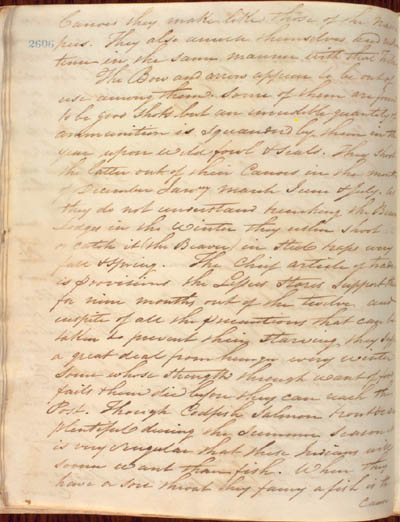 Canoes they make like those of the
2606
pus. They also amuse themselves and
time in the same manner with that
The Bow and arrows appear to be out of
use among them some of them are
to be good shots but an incredible quantity of
ammunition is squandered by them in the
year upon Wild fowl & Seals. They shoot
the latter out of their Canoes in the
of December Jany march June & July. As
they do not understand trenching the Beaver
Lodges in the Winter they either shoot
or catch it (the Beaver) in Steel traps every
fall & Spring. The Chief article of trade
is provisions the Keepers Stores support the
for nine months out of the twelve and
inspite of all the precautions that can be
taken to prevent their starving they
a great deal from hunger every winter
Some whose strength through want of
fails them die before they can reach the
Post. Though Codfish Salmon trout &c are
plentiful during the Summer season
is very singular that these Indians will
sooner want than fish. When they
have a sore throat they fancy a fish is the
Cause